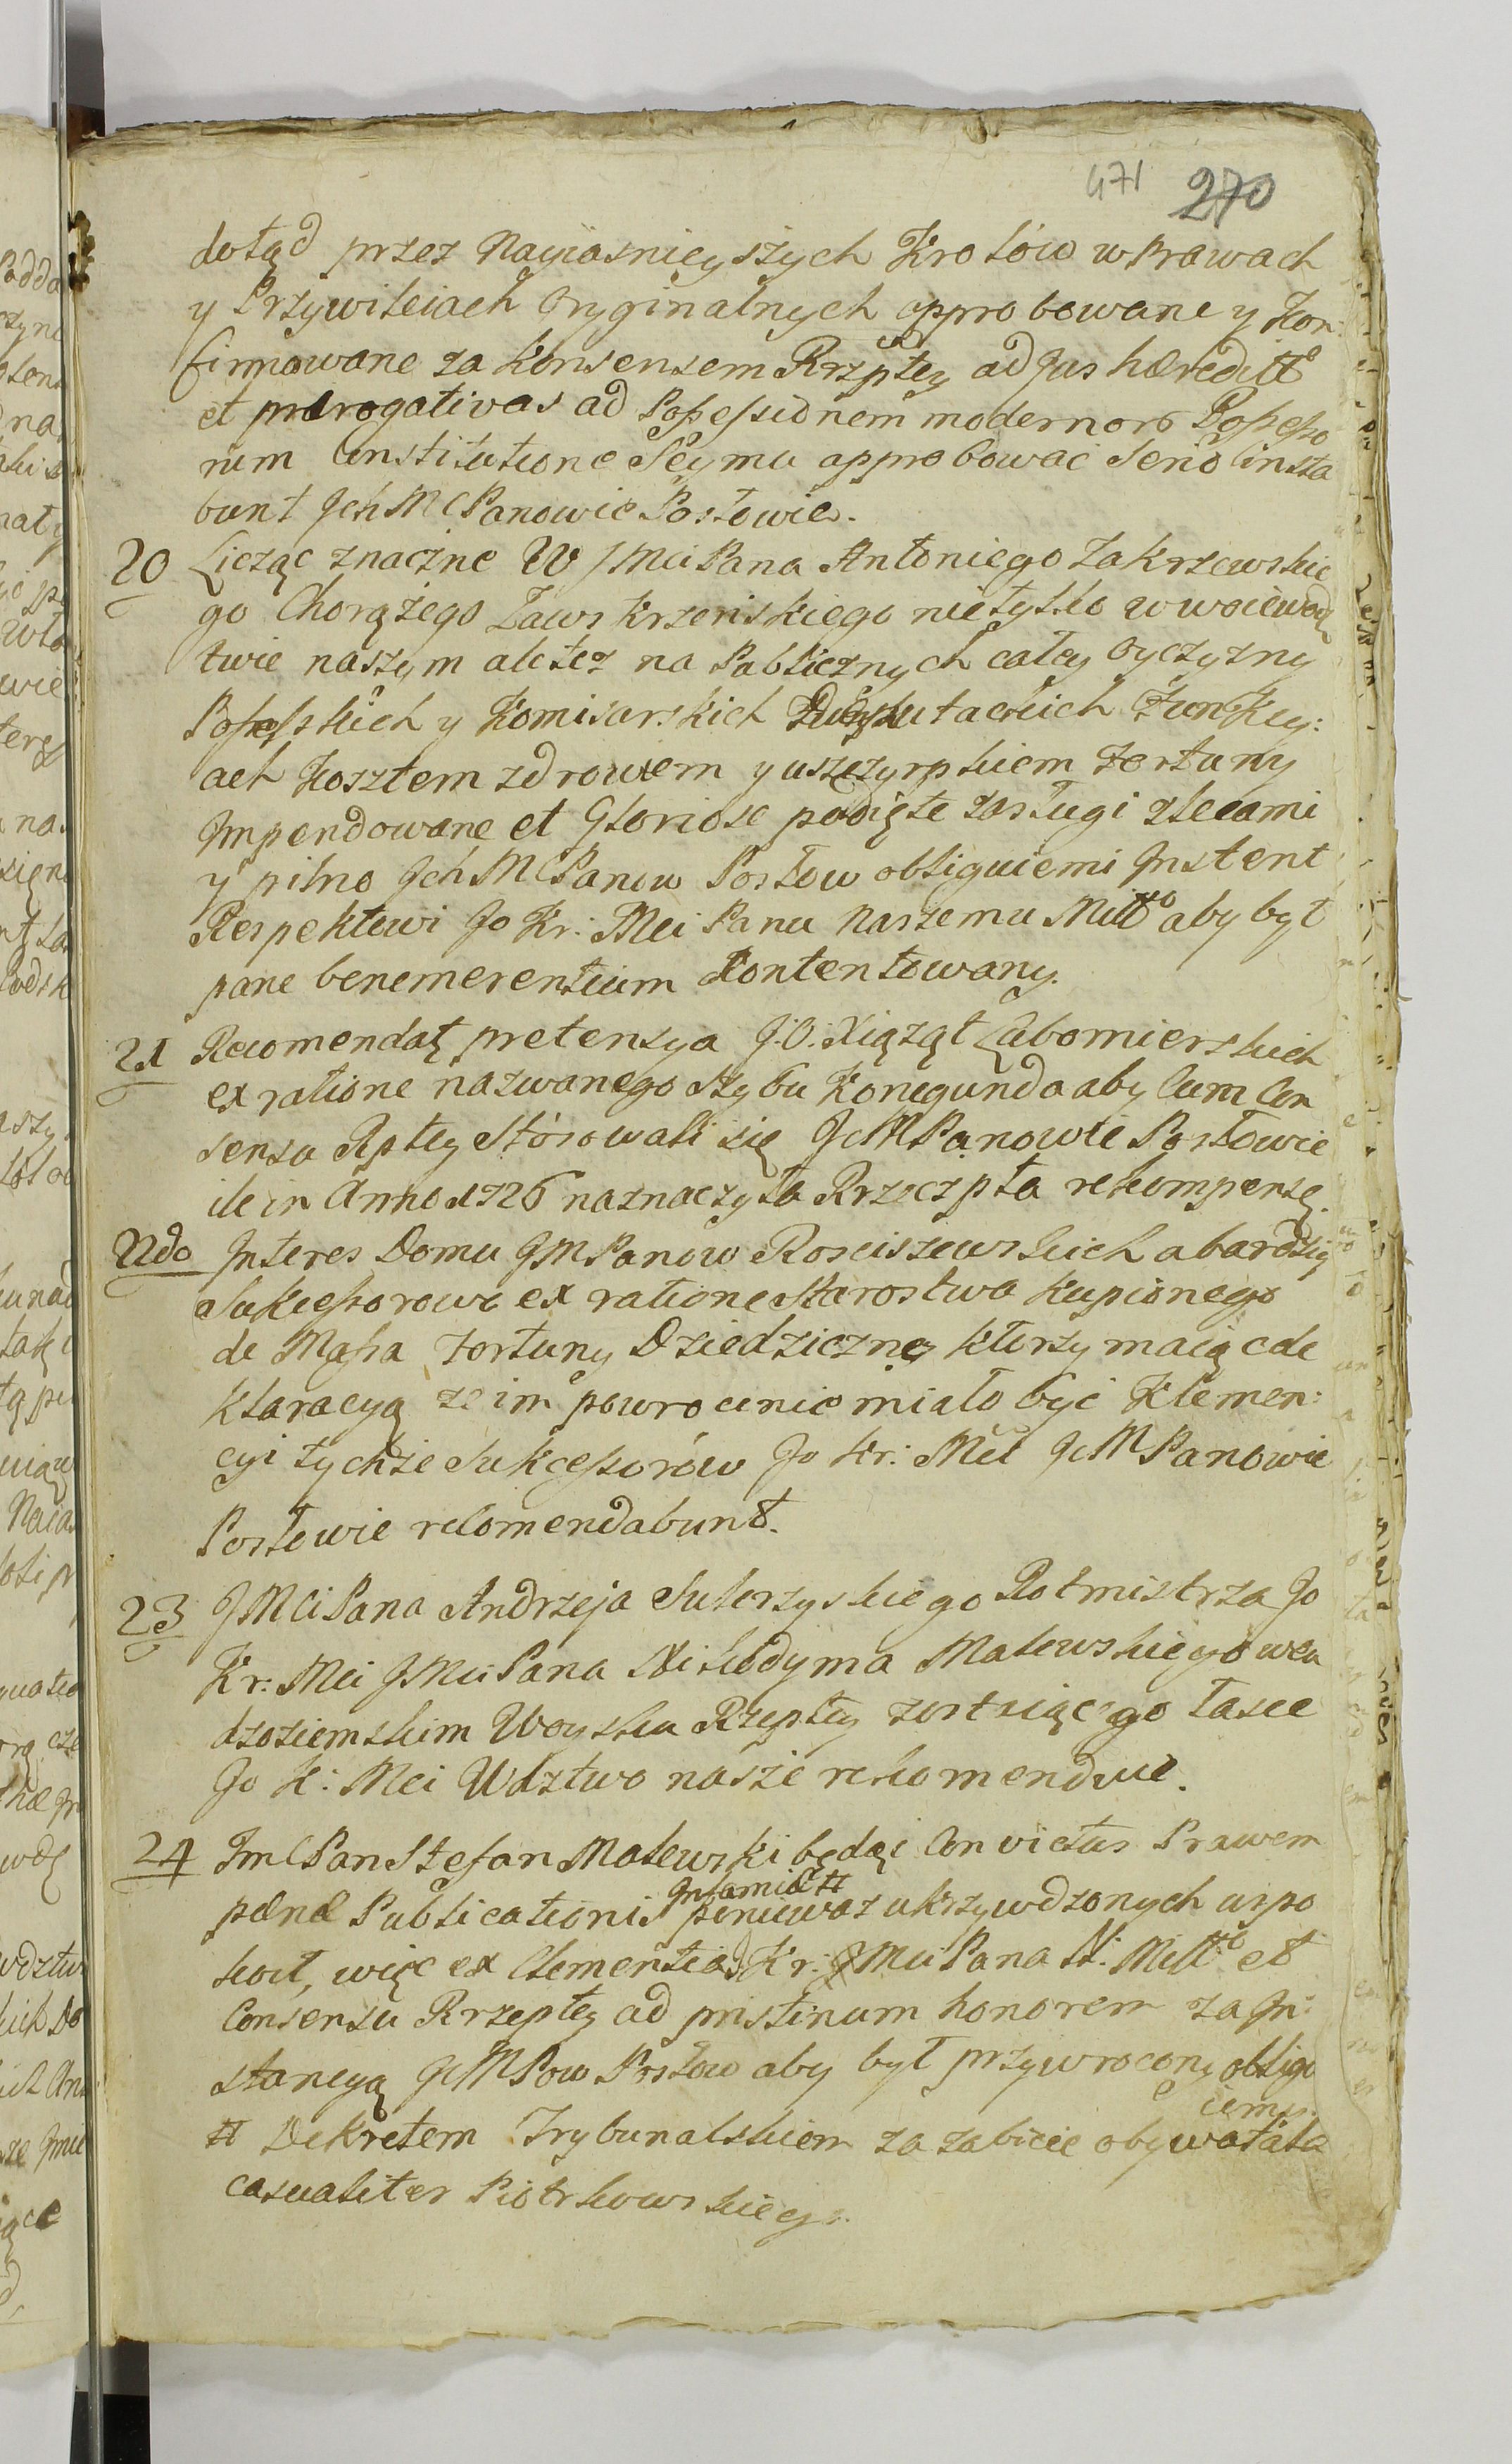 471 270
dotąd przez Nayiasnieyszych Krolów w Prawach
y Przywileiach Oryginalnych approbowane y Kon:
firmowane za Konsensem Rzptey ad Jus hæreditt
et prærogativas ad Possessionem modernor Possesso
rum Constitutione Seymu approbować serio insta
bunt Jch MC Panowie Posłowie.
20 Licząc znaczne W JMci Pana Antoniego Zakrzewskie
go Chorążego Zawskrzenskiego nietylko w woiewodz
twie naszym ale też na Publicznych całey Oyczyzny
Poselskich y Komisarskich Funkcy:
ach Kosztem zdrowiem y uszczyrpkiem Fortuny
Jmpendowane et Gloriose podięte zasługi zlecami
y pilno Jch MC Panow Posłow obliguiemi Jnstent
Respektowi Jo Kr: Mci Panu Naszemu Miłło aby był
pane benemerentium Kontentowany.
21 Recomendaţ pretensya J.O. Xiążąt Lubomierskich
ex ratione nazwanego Szybu Konegunda aby Cum Con
sensu Rptey Stósowali się JcM Panowie Posłowie
ile in Anno 1726 naznaczyła Rzeczpta rekompensę.
Ndo Jnteres Domu JM Panow Rosciszewskich a bardziey
Sukcessorowi ex ratione Starostwa Kupionego
de Massa Fortuny Dziedziczney którzy maią cde
klaracyą ze im powrocenie miało być Klemen:
cyi tychże Sukcessorów Jo Kr: Mci JcM Panowie
Posłowie recomendabunt.
23 JMCi Pana Andrzeja Sulerzyskiego Rotmistrza Jo
Kr: Mci JMci Pana Nikodyma Malewskiego w cu
dzoziemskim Woysku Rzeptey zostaiącego łasce
Jo K: Mci Wdztwo nasze rekomenduie.
24 JmC Pan Stefan Malewski będąc Convictus Prawem
pænæ Publicationis Jnfamiæ # poniewaz ukrzywdzonych uspo
koił, więc ex Clementia Kr: JMci Pana N: Miłło et
Consensu Rrzeptey ad pristinum honorem za Jn:
stancyą JcM Pow Posłow aby był przywrocony obligu
iemy.
# Dekretem Trybunalskiem za zabicie obywatela
casualiter Piotrkowskiego.